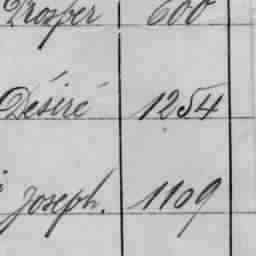 Prosper 600
Désiré 1254
Joseph. 1109